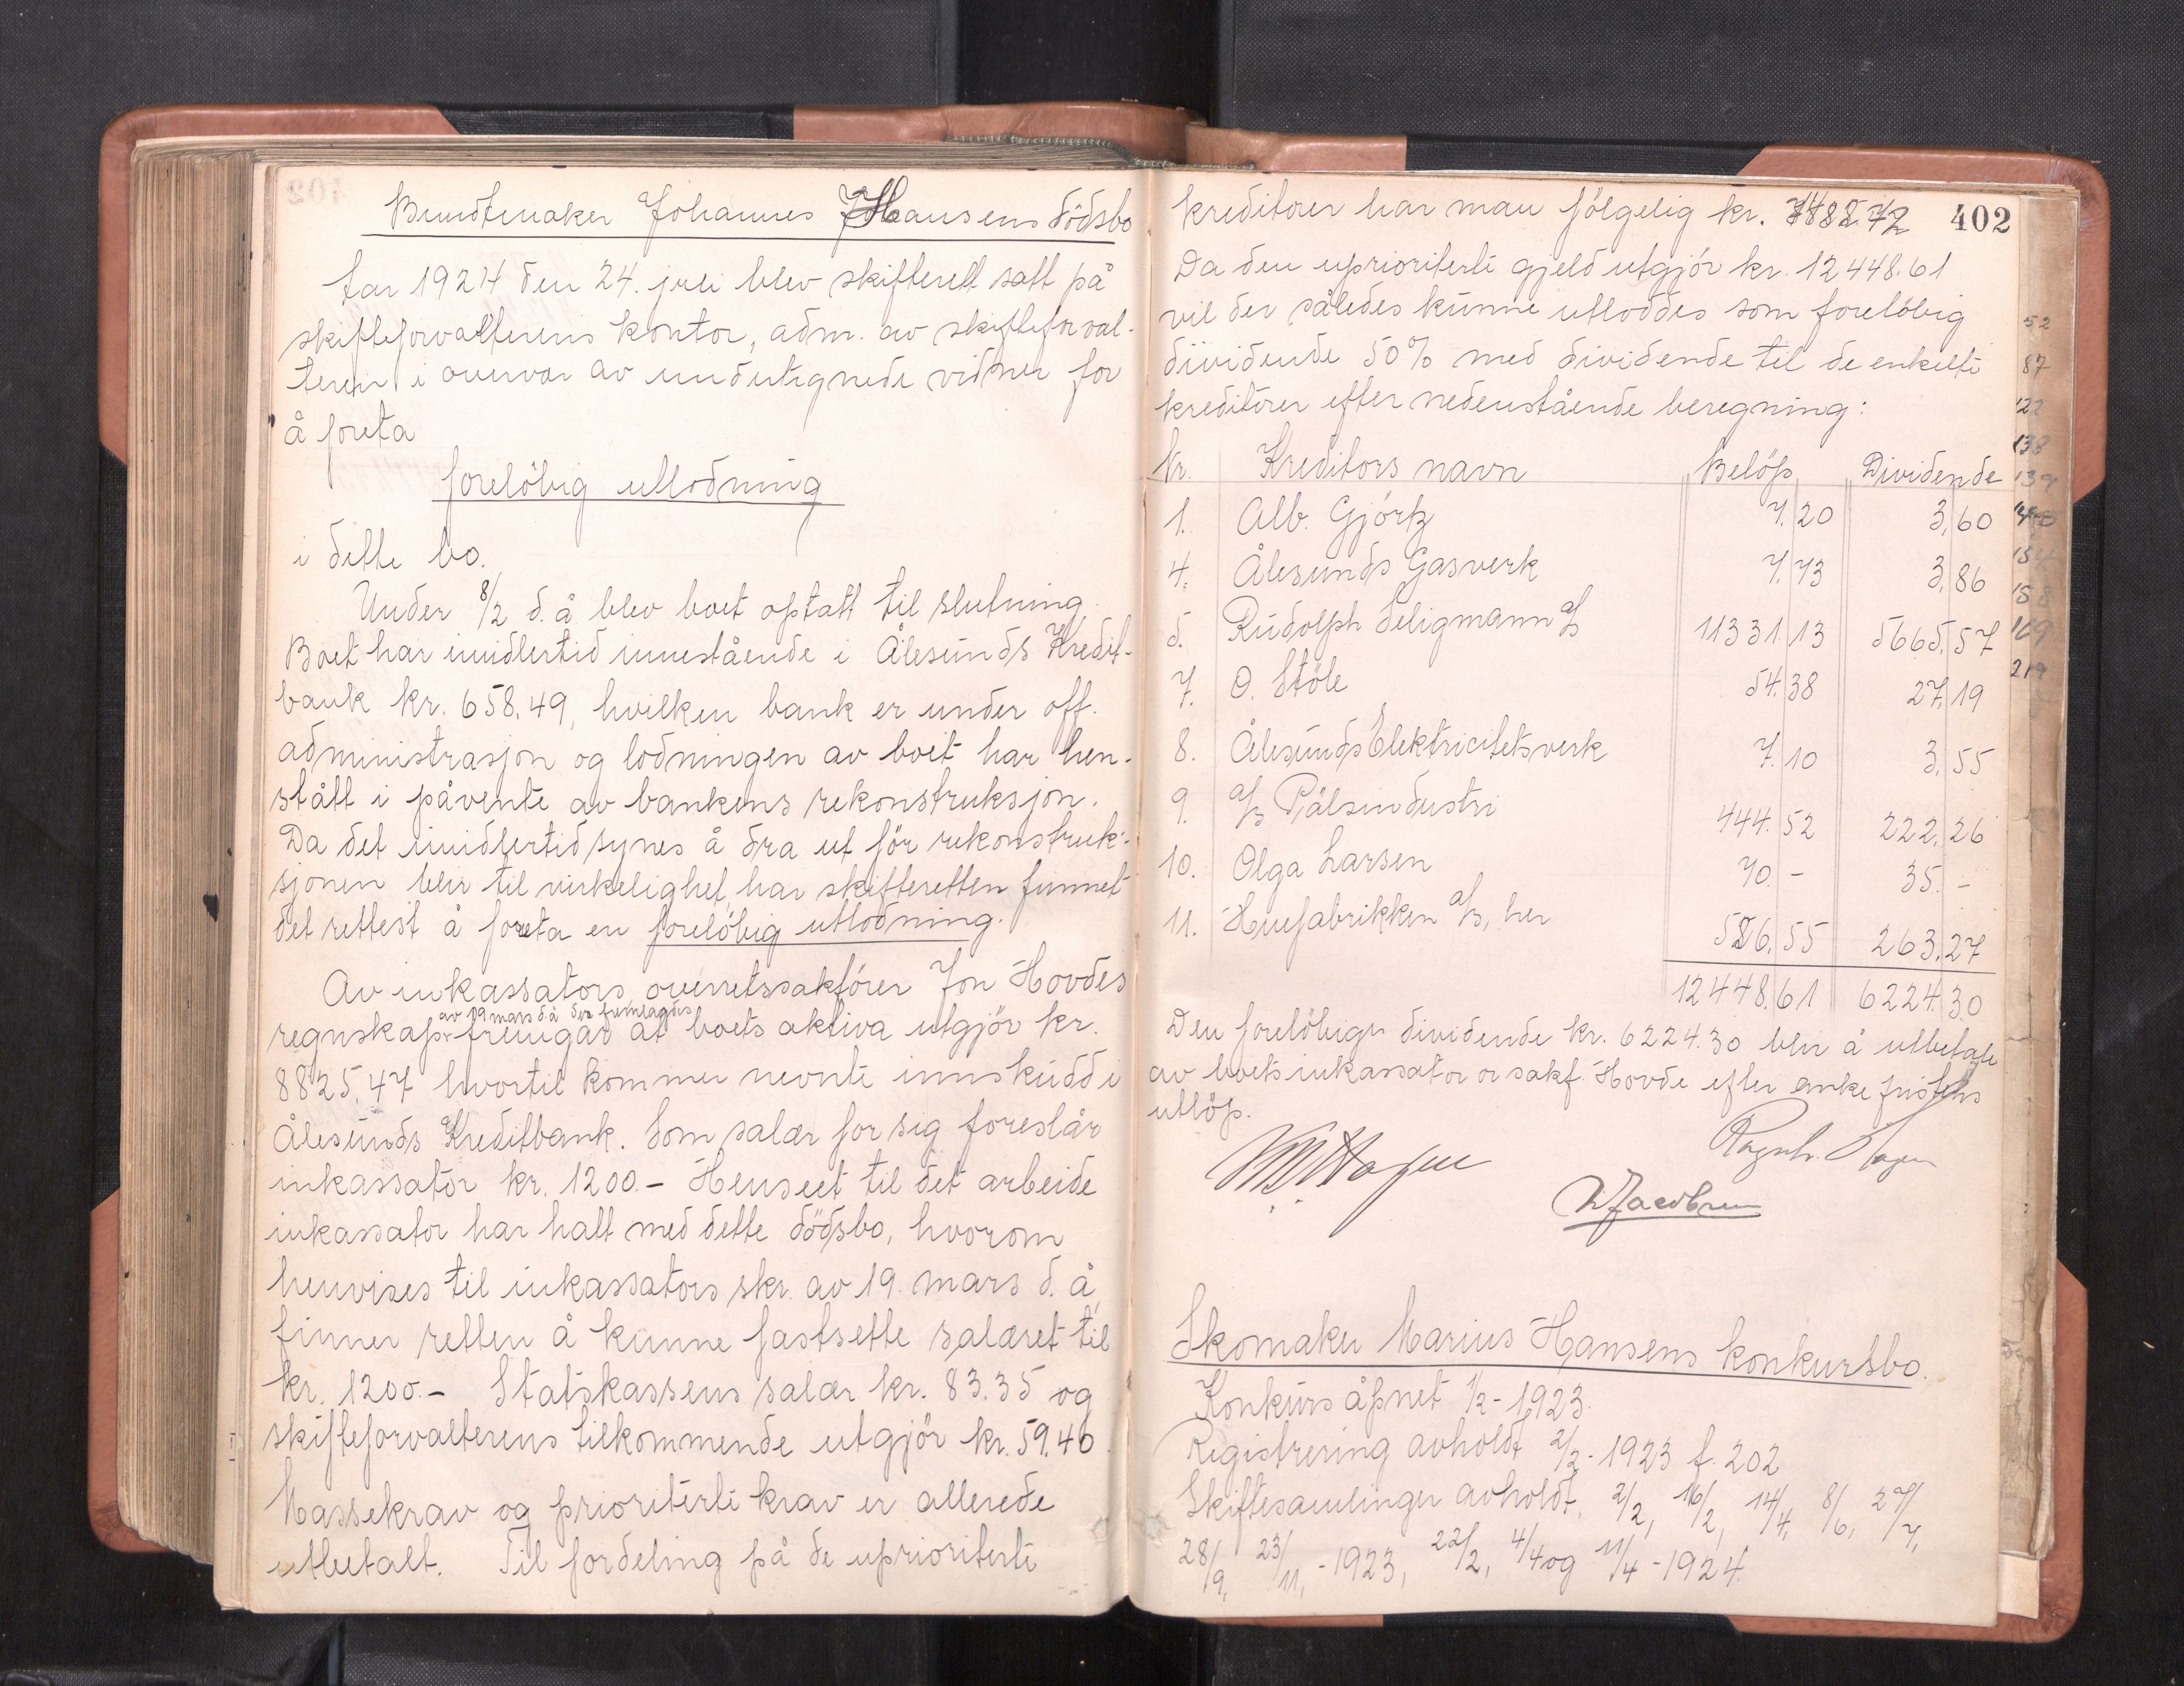 Bundtmaker Johannes J Hansens dödsbo
År 1924 den 24. juli blev skifterett satt på
skifteforvalterens kontor, adm. av skifteforval-
teren i overvær av undertegnede vidner for
å foreta
foreløbig utlodning
i dette bo.
Under 8/2 d.å blev boet optatt til slutning.
Boet har imidlertid innestående i Ålesunds Kredit-
bank kr. 658.49, hvilken bank er under off.
administrasjon og lodningen av boet har hen-
stått i påvente av bankens rekonstruksjon.
Da det imidlertid synes å dra ut för rekonstruk-
sjonen blir til virkelighet, har skifteretten funnet
det rettest å foreta en forelöbig utlodning.
Av inkassators, overretssakförer Jon Hovdes
av 19 mars d å der fremlagdes
regnskap fremgår at boets aktiva utgjör kr.
8825.47 hvortil kommer nevnte innskudd i
Ålesunds Kreditbank. Som salær for sig foreslår
inkassator kr. 1200.- Henseet til det arbeide
inkassator har hatt med dette dödsbo, hvorom
henvises til inkassators skr. av 19. mars d. å,
finner retten å kunne fastsette salæret til
kr. 1200.- Statskassens salær kr. 83.35 og
skifteforvalterens tilkommende utgjör kr. 59.40.
Massekrav og prioriterte krav er allerede
utbetalt. Til fordeling på de uprioriterte
402
kreditorer har man fölgelig kr. 7482.72
Da den uprioriterte gjeld utgjör kr. 12448.61
vil der således kunne utloddes som forelöbig
dividende 50% med dividende til de enkelte
kreditorer efter nedenstående beregning:
Nr. Kreditors navn Belöp Dividende
1. Alb. Gjörtz 7.20 3.60
4. Ålesunds Gasverk 7.73 3.86
5. Rudolph Seligmann a/s 11331.13 5665.57
7. O. Stöle 54.38 27.19
8. Ålesunds Elektricitetsverk 7.10 3.55
9. a/s Pälsindustri 444.52 222.26
10. Olga Larsen 70.- 35.-
11. Huefabrikken a/s, her 526.55 263.27
12448.61 6224.30
Den forelöbige dividende kr. 6224.30 blir å utbetale
av boets inkassator or sakf. Hovde efter ankefristens
utlöp.
Ragnh. Hagen
Jacobsen
Skomaker Marius Hansens konkursbo.
Konkurs åpnet 1/2-1923.
Registrering avholdt 2/2-1923 f. 202
Skiftesamlinger avholdt, 2/2, 16/2, 14/4, 8/6, 27/7,
28/9, 23/11,-1923, 22/2, 4/4 og 11/4-1924.
52
87
122
138
139
154
158
169
219